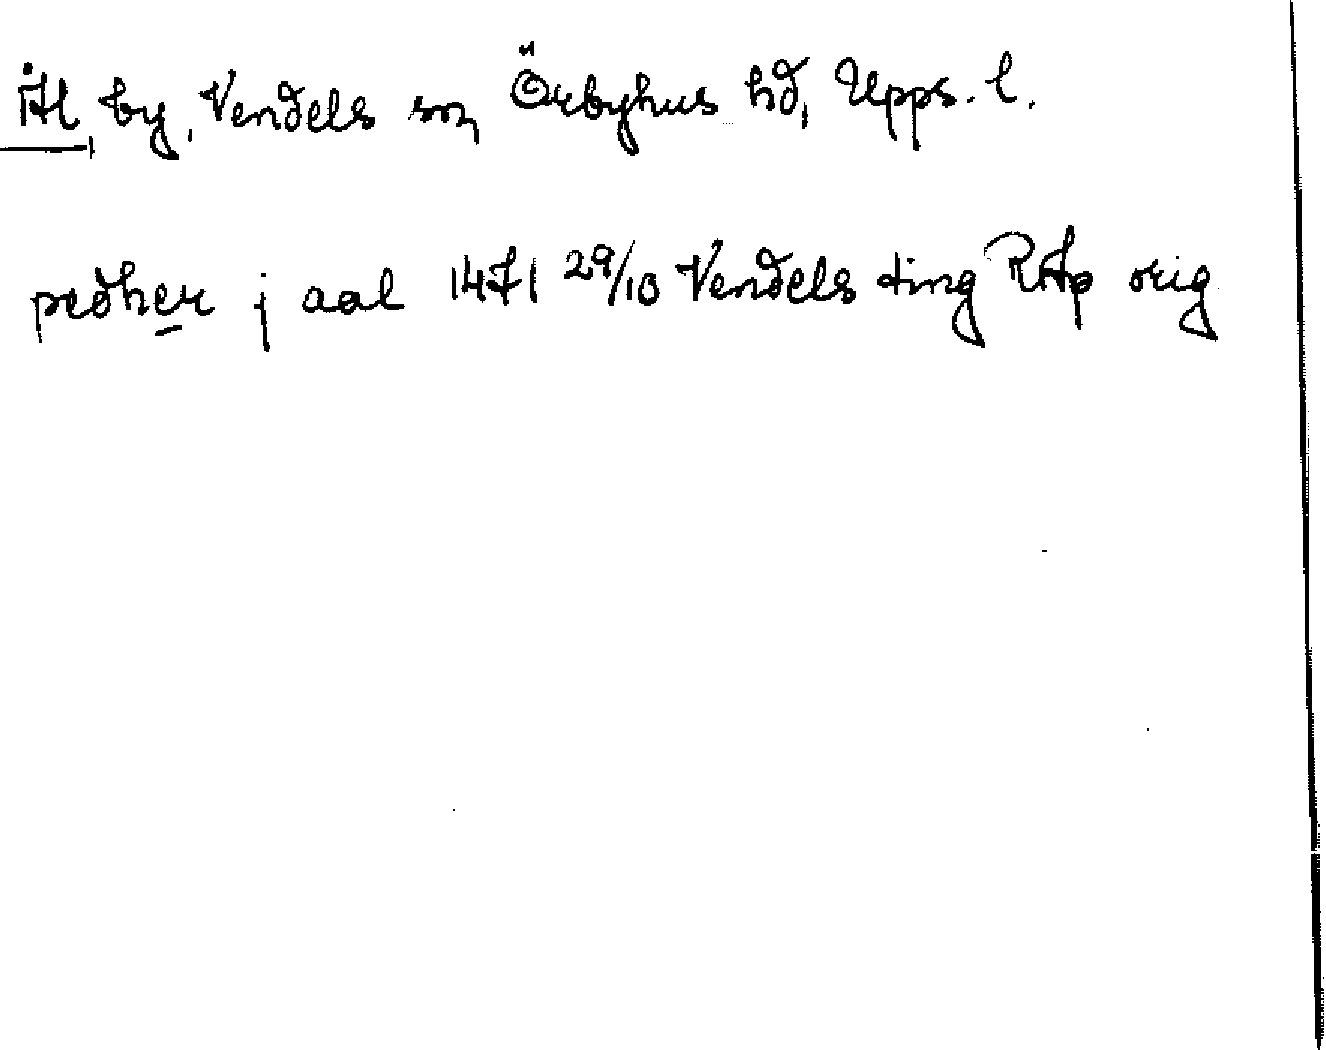 Ål, by, Vendels sn, Örbyhus hd, Upps. l.
pedher j aal 1471 29/10 Vendels ting RAp orig